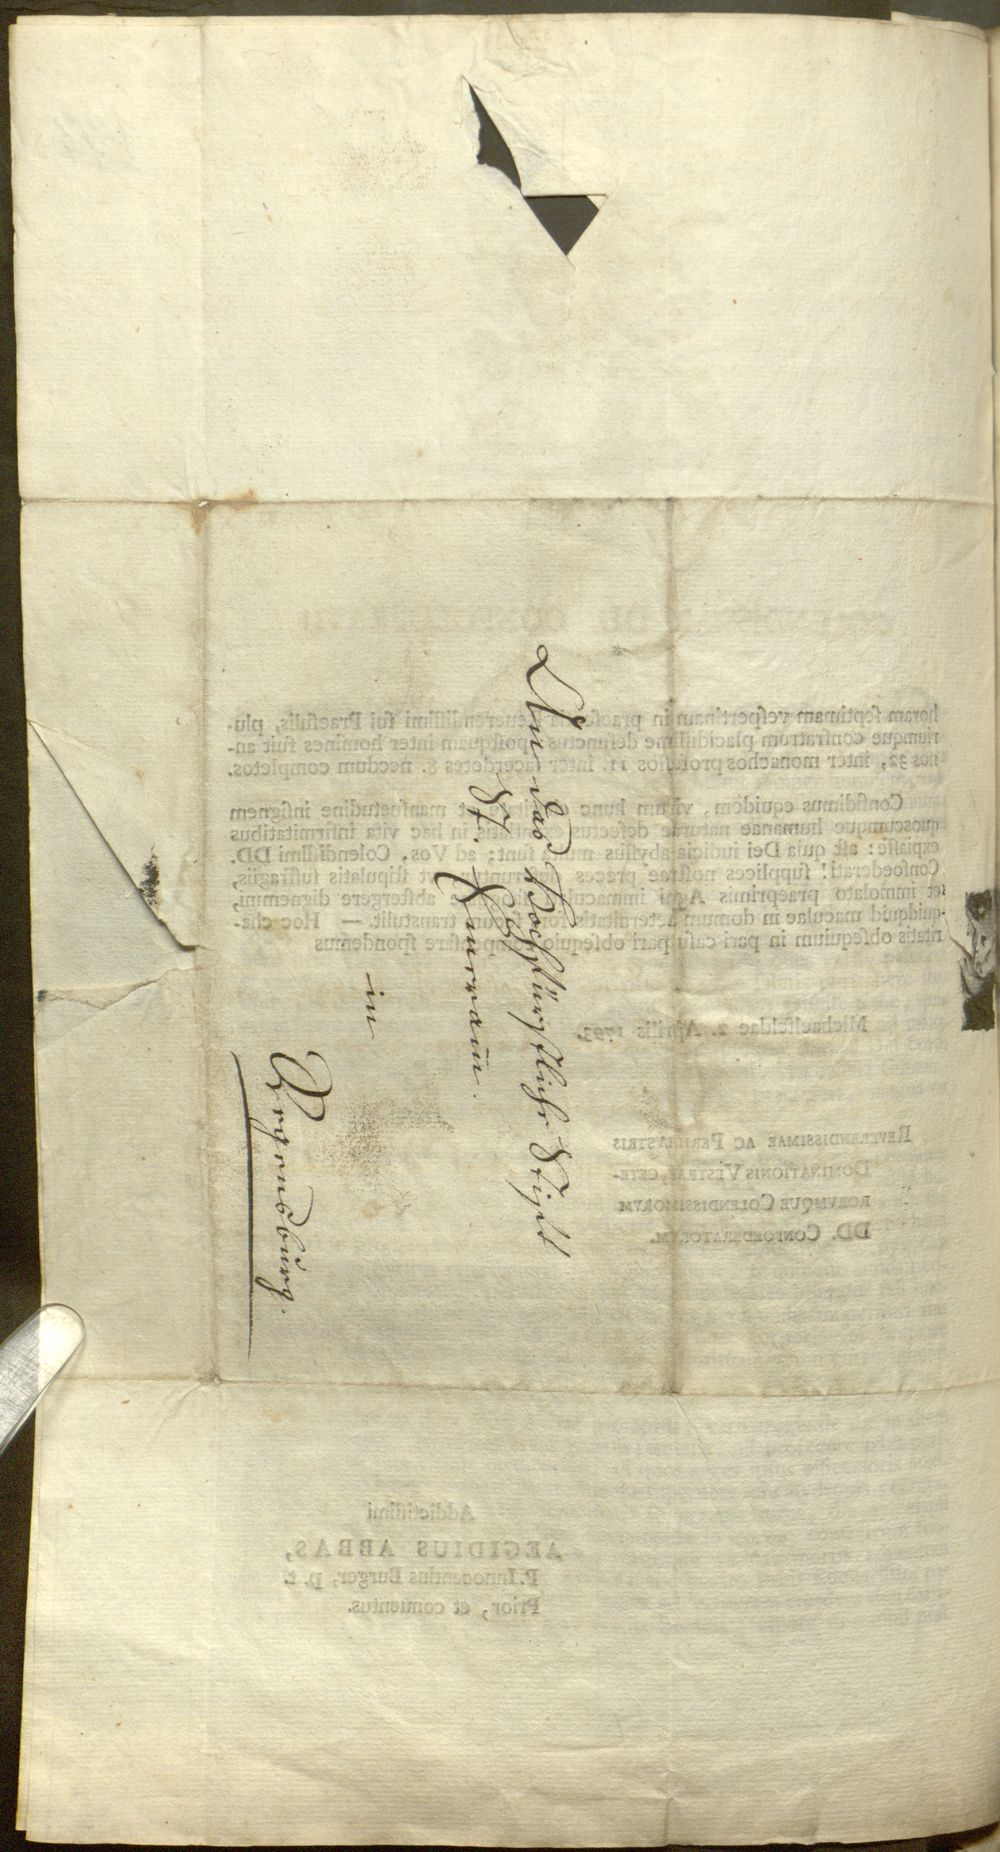 An das Hochfürstliche Stift
St. Emeram̄
in
Regensburg.
horam septimam vespertinam in Reuerendissimi sui Praesulis, plu-
riumque confratrum placidissime defunctus, postquam inter homines fuit an-
nos 32, inter monachos professos 11. inter sacerdotes 8. necdum completos.
Confidimus equidem, virum hunc et mansuetudine insignem
quoscumque humanae naturae defectus in hac vita infirmitatibus
expiasse: ast quia Dei iudicia abyssus multa sunt; ad Vos, Colendissimi DD.
Confoederati! supplices nostrae preces vt stipulatis suffragiis,
et immolato praeprimis Agni immaculati abstergere dignemini,
quidquid maculae in domum aeternitatis secum transtulit. — Hoc cha-
ritatis obsequium in pari casu pari obsequio compensare spondemus
Michaelfeldae 2. Aprilis 1793.
REVERENDISSIMAE AC PERILLVSTRIS
DOMINATIONIS VESTRAE, CETE-
RORVMQUE COLENDISSIMORVM
DD. CONFOEDERATORVM.
Addictissimi
AEGIDIUS ABBAS,
P. Innocentius Burger, p. t.
Prior, et conuentus.